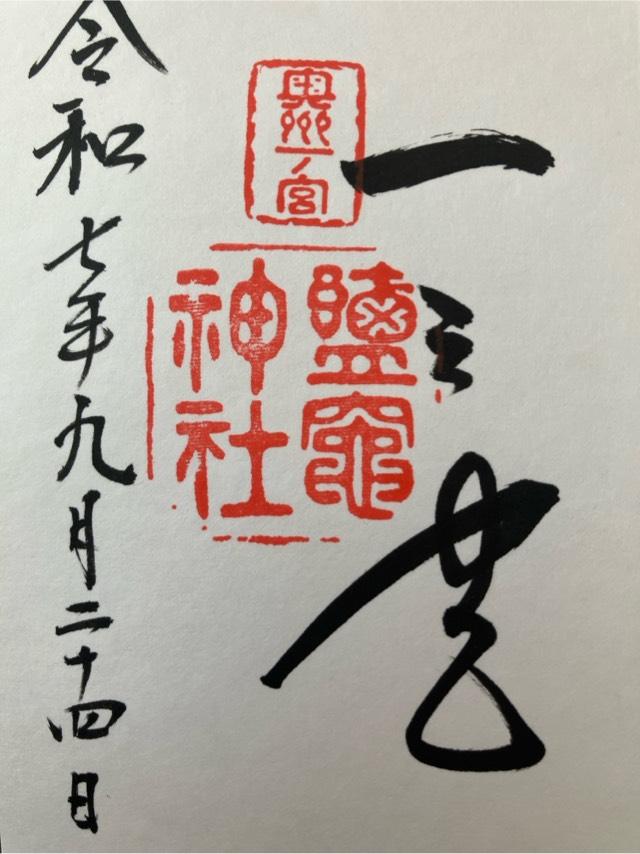 一之宮
奥州一ノ宮
鹽竈
神社
令和七年九月二十四日